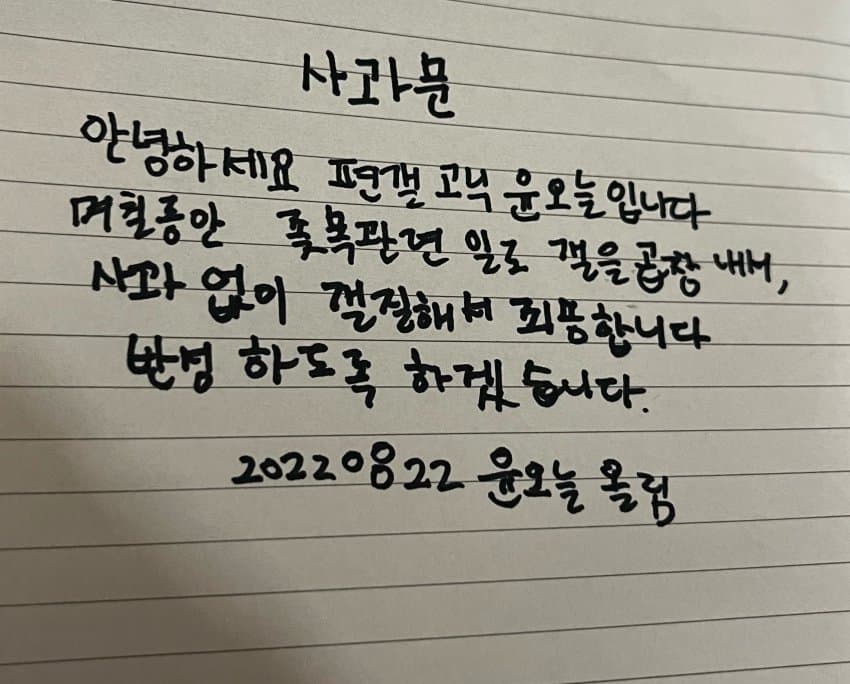 사과문
안녕하세요 편갤 고닉 윤오늘입니다
며칠동안 좆목관련 일로 갤을 곱창 내서,
사과 없이 갤질해서 죄송합니다
반성 하도록 하겠습니다.
20220822 윤오늘 올림